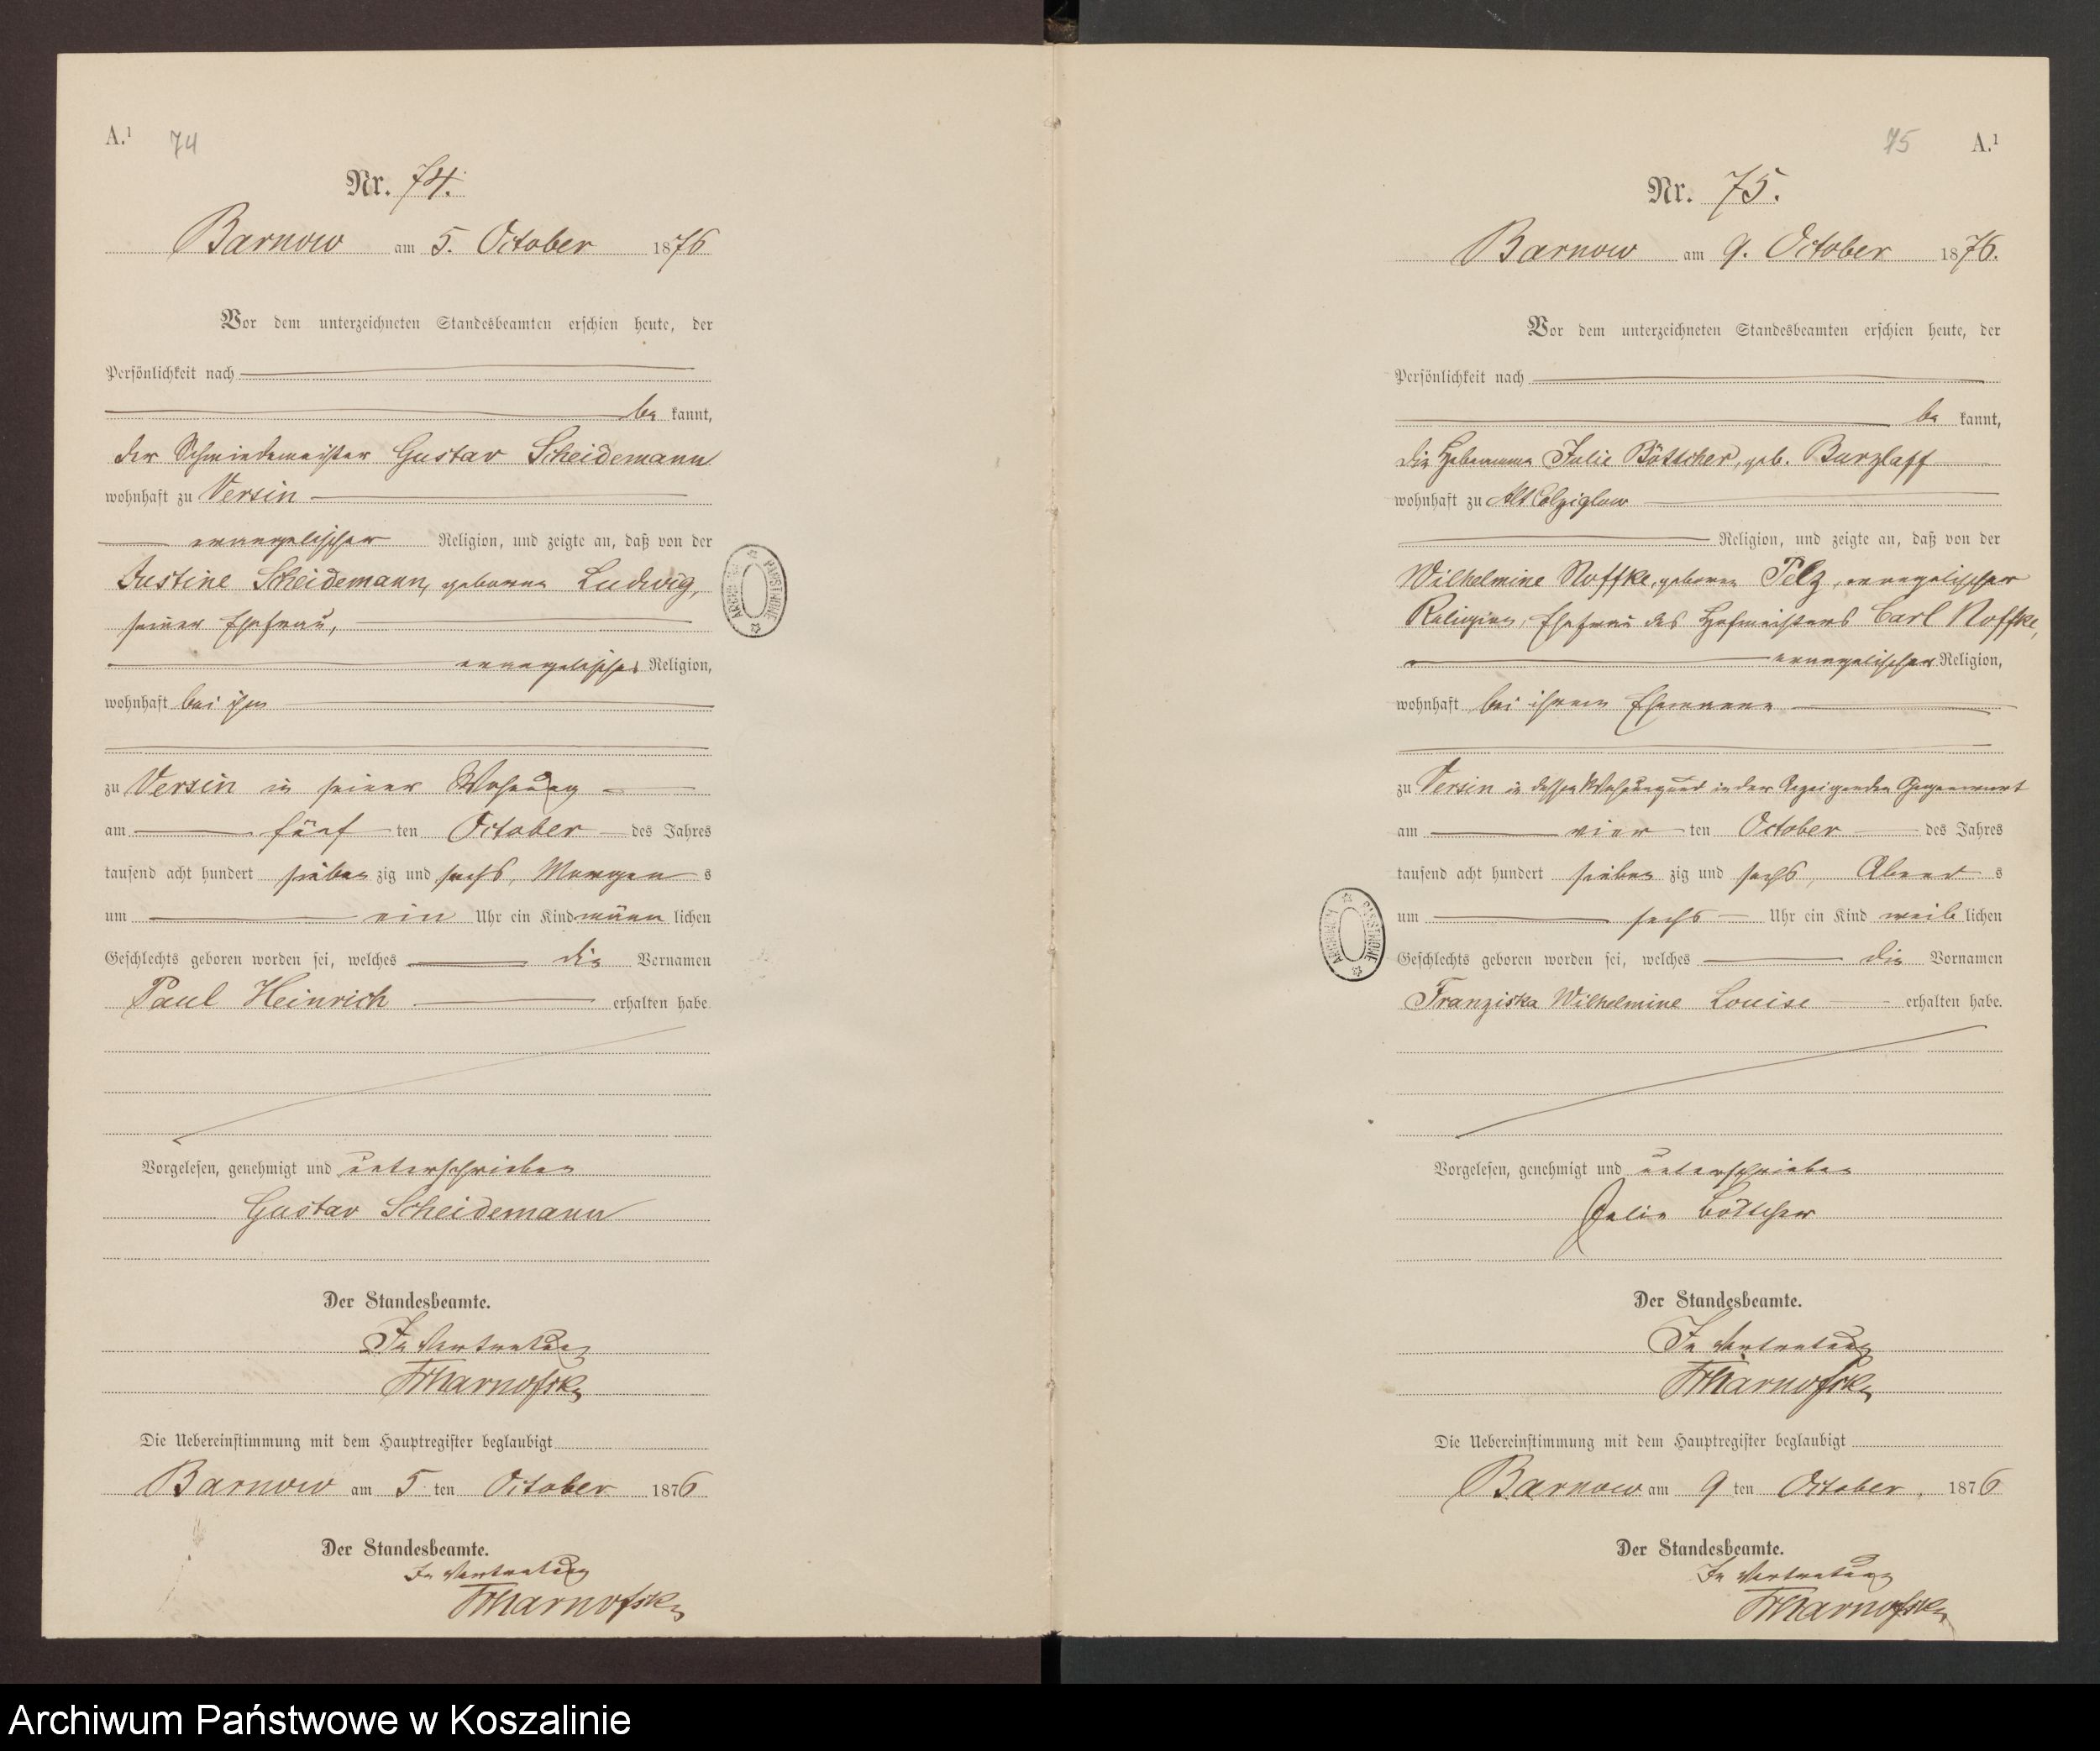 A.¹ 74
Nr. 74.
Barnow am 5. October 1876
Vor dem unterzeichneten Standesbeamten erschien heute, der
Persönlichkeit nach
be kannt,
der Schmiedemeister Gustav Scheidemann
wohnhaft zu Versin
evangelischer Religion, und zeigte an, daß von der
Justine Scheidemann, geborene Ludwig,
seiner Ehefrau,
evangelischer Religion,
wohnhaft bei ihm
zu Versin in seiner Wohnung
am fünf ten October des Jahres
tausend acht hundert sieben zig und sechs, Morgen s
um ein Uhr ein Kind männ lichen
Geschlechts geboren worden sei, welches die Vornamen
Paul Heinrich erhalten habe
Vorgelesen, genehmigt und unterschrieben
Gustav Scheidemann
Der Standesbeamte.
In Vertretung
Die Uebereinstimmung mit dem Hauptregister beglaubigt
Barnow am 5 ten October 1876
Der Standesbeamte.
In Vertretung
75 A.¹
Nr. 75.
Barnow am 9. October 1876.
Vor dem unterzeichneten Standesbeamten erschien heute, der
Persönlichkeit nach
be kannt,
die Hebamme Julie Böttcher, geb. Barzlaff
wohnhaft zu Alt Colziglow
Religion, und zeigte an, daß von der
Wilhelmine Noffke, geborene Pelz, evangelischer
Religion, Ehefrau des Hofmeisters Carl Noffke,
evangelischer Religion,
wohnhaft bei ihrem Ehemann
zu Versin in dessen Wohnung und in der Anzeigenden Gegenwart
am vier ten October des Jahres
tausend acht hundert sieben zig und sechs, Abend s
um sechs Uhr ein Kind weib lichen
Geschlechts geboren worden sei, welches die Vornamen
Franziska Wilhelmine Louise erhalten habe.
Vorgelesen, genehmigt und unterschrieben
Julie Böttcher
Der Standesbeamte.
In Vertretung
Die Uebereinstimmung mit dem Hauptregister beglaubigt
Barnow am 9 ten October, 1876
Der Standesbeamte.
In Vertretung
ARCHIWUM PAŃSTWOWE
ARCHIWUM PAŃSTWOWE
Archiwum Państwowe w Koszalinie